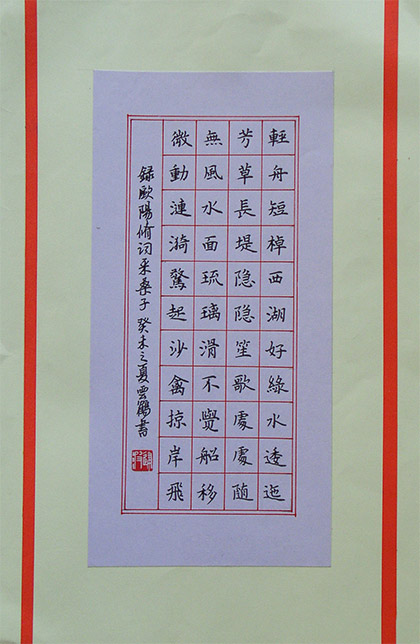 輕舟短棹西湖好綠水逶迤
芳草長堤隐隐笙歌處處随
無風水面琉璃滑不覺船移
微動漣漪驚起沙禽掠岸飛
録歐陽脩詞采桑子 癸未之夏雲鶴書